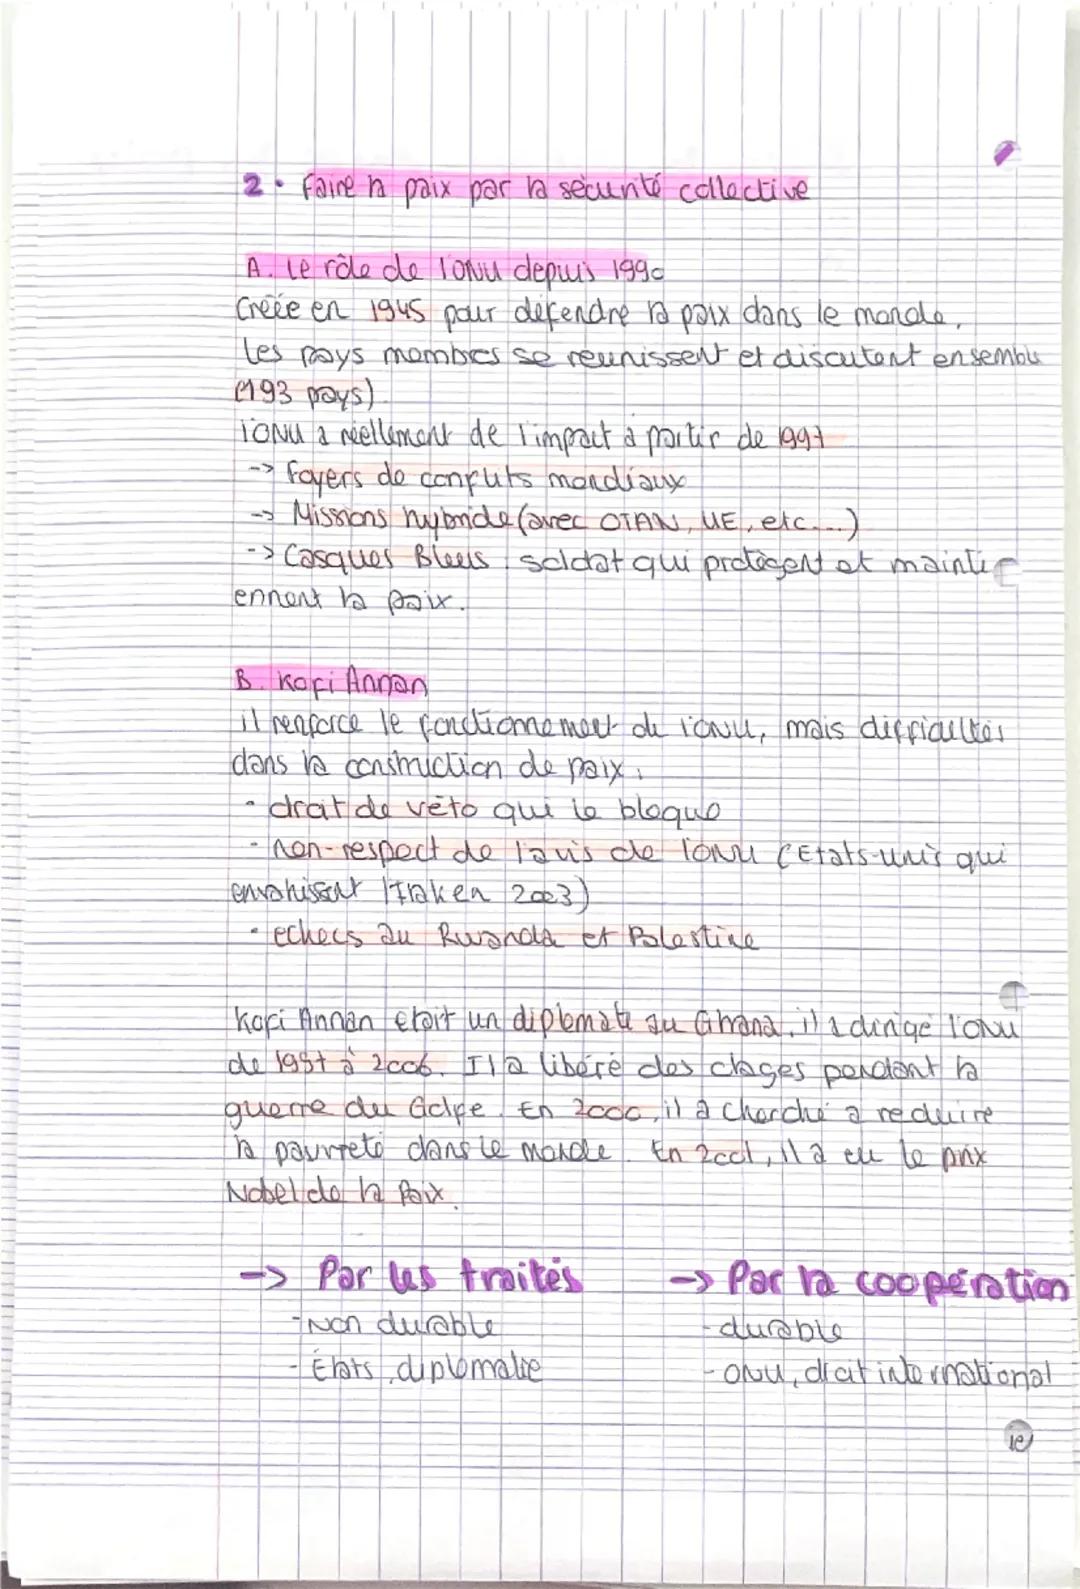 2. Faire la paix par la sécurité collective
A. Le rôle de l'ONU depuis 1990
Créée en 1945 pour défendre la paix dans le monde.
Les pays membres se réunissent et discutent ensemble
(193 pays)
l'ONU a réellement de l'impact à partir de 1997
-> Foyers de conflits mondiaux
-> Missions hybride (avec OTAN, UE, etc...)
-> Casques Bleus : soldat qui protègent et mainti
ennent la paix.
B. Kofi Annan
il renforce le fonctionnement de l'ONU, mais difficultés
dans la construction de paix :
- droit de véto qui le bloque
- non-respect de l'avis de l'ONU (Etats-unis qui
envahissent l'Irak en 2003)
- echecs au Rwanda et Palestine
Kofi Annan etait un diplomate au Ghana, il a dirigé l'ONU
de 1997 à 2006. Il a libéré des otages pendant la
guerre du Golfe. En 2000, il a cherché a reduire
la pauvreté dans le monde. En 2001, il a eu le prix
Nobel de la Paix.
-> Par les traités -> Par la coopération
- Non durable - durable
- États, diplomatie - ONU, droit international